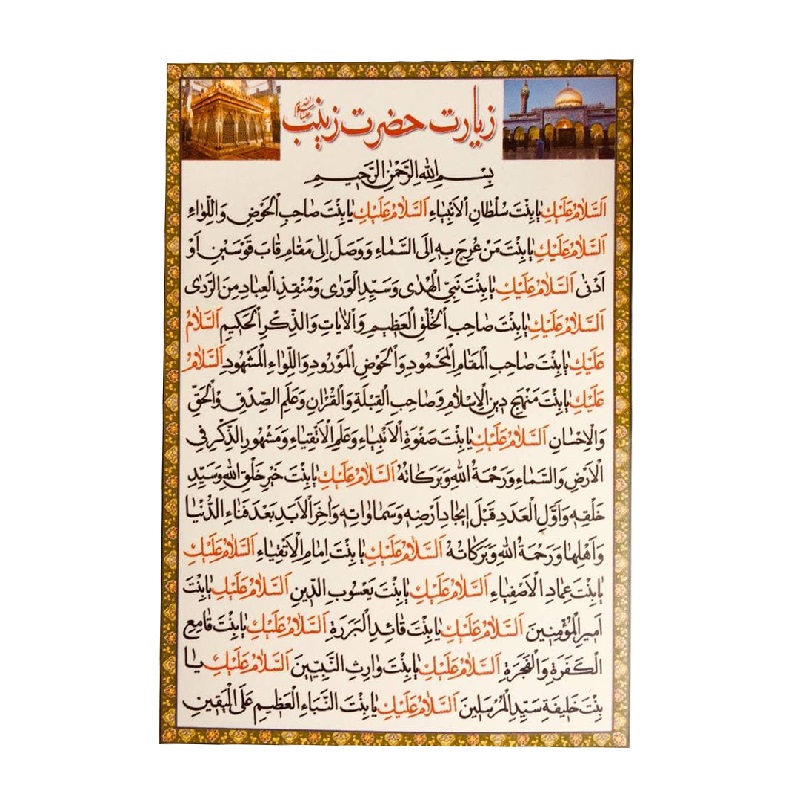 زیارت حضرت زینب
بِسْمِ اللهِ الرَّحْمٰنِ الرَّحِيمِ
اَلسَّلامُ عَلَيْكِ يا بِنْتَ سُلْطانِ الْاَنْبِياءِ اَلسَّلامُ عَلَيْكِ يا بِنْتَ صاحِبِ الْحَوْضِ وَاللِّواءِ
اَلسَّلامُ عَلَيْكِ يا بِنْتَ مَنْ عُرِجَ بِهِ اِلَى السَّماءِ وَوَصَلَ اِلى مَقامِ قابَ قَوْسَيْنِ اَوْ
اَدْنى اَلسَّلامُ عَلَيْكِ يا بِنْتَ نَبِيِّ الْهُدى وَسَيِّدِ الْوَرى وَمُنْقِذِ الْعِبادِ مِنَ الرَّدى
اَلسَّلامُ عَلَيْكِ يا بِنْتَ صاحِبِ الْخُلْقِ الْعَظيمِ وَالْاياتِ وَالذِّكْرِ الْحَكيمِ اَلسَّلامُ
عَلَيْكِ يا بِنْتَ صاحِبِ الْمَقامِ الْمَحْمُودِ وَالْحَوْضِ الْمَوْرُودِ وَاللِّواءِ الْمَشْهُودِ اَلسَّلامُ
عَلَيْكِ يا بِنْتَ مَنْهَجِ دينِ الْاِسْلامِ وَصاحِبِ الْقِبْلَةِ وَالْقُرْانِ وَعَلَمِ الصِّدْقِ وَالْحَقِّ
وَالْاِحْسانِ اَلسَّلامُ عَلَيْكِ يا بِنْتَ صَفْوَةِ الْاَنْبِياءِ وَعَلَمِ الْاَتْقِياءِ وَمَشْهُورِ الذِّكْرِ فِى
الْاَرْضِ وَالسَّماءِ وَرَحْمَةُ اللهِ وَبَرَكاتُهُ اَلسَّلامُ عَلَيْكِ يا بِنْتَ خَيْرِ خَلْقِ اللهِ وَسَيِّدِ
خَلْقِهِ وَاَوَّلِ الْعَدَدِ قَبْلَ ايجادِ اَرْضِهِ وَسَماواتِهِ وَاخِرِ الْاَبَدِ بَعْدَ فَناءِ الدُّنْيا
وَاَهْلِها وَرَحْمَةُ اللهِ وَبَرَكاتُهُ اَلسَّلامُ عَلَيْكِ يا بِنْتَ اِمامِ الْاَتْقِياءِ اَلسَّلامُ عَلَيْكِ
يا بِنْتَ عِمادِ الْاَصْفِياءِ اَلسَّلامُ عَلَيْكِ يا بِنْتَ يَعْسُوبِ الدّينِ اَلسَّلامُ عَلَيْكِ يا بِنْتَ
اَميرِ الْمُؤْمِنينَ اَلسَّلامُ عَلَيْكِ يا بِنْتَ قائِدِ الْبَرَرَةِ اَلسَّلامُ عَلَيْكِ يا بِنْتَ قامِعِ
الْكَفَرَةِ وَالْفَجَرَةِ اَلسَّلامُ عَلَيْكِ يا بِنْتَ وارِثِ النَّبِيّينَ اَلسَّلامُ عَلَيْكِ يا
بِنْتَ خَليفَةِ سَيِّدِ الْمُرْسَلينَ اَلسَّلامُ عَلَيْكِ يا بِنْتَ النَّبَاءِ الْعَظيمِ عَلَى الْيَقينِ